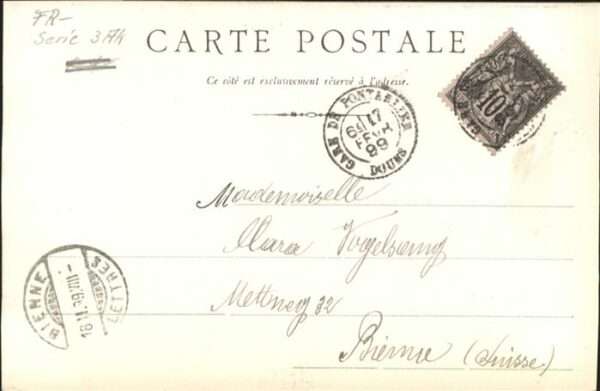 FR-
Serie 3A4
CARTE POSTALE
Ce côté est exclusivement réservé à l'adresse.
GARE DE PONTARLIER
17
FEVR
99
DOUBS
10
Mademoiselle
Clara Vogelsang
Mettweg 32
Bienne (Suisse)
BIENNE
LETTRES